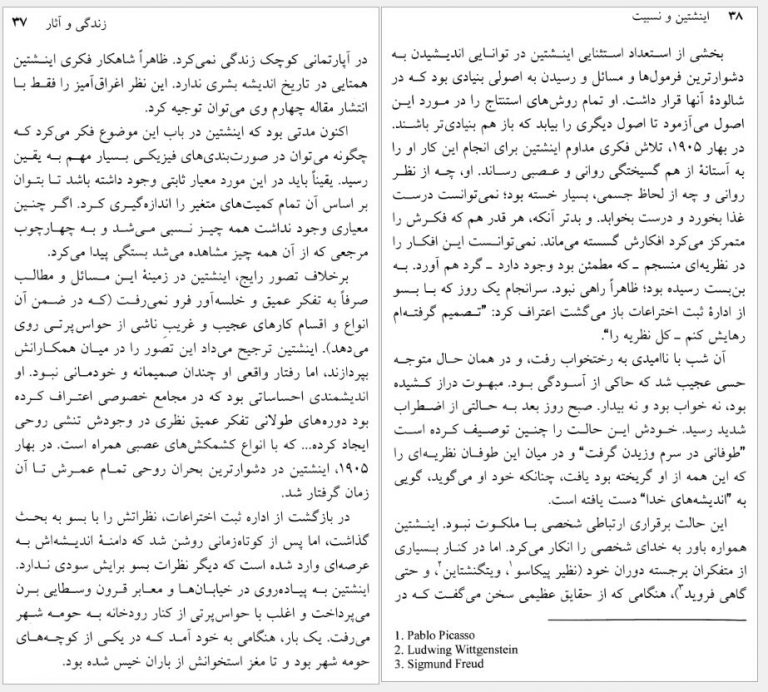 زندگی و آثار ۳۷
در آپارتمانی کوچک زندگی نمی‌کرد. ظاهراً شاهکار فکری اینشتین
همتایی در تاریخ اندیشه بشری ندارد. این نظر اغراق‌آمیز را فقط با
انتشار مقاله چهارم وی می‌توان توجیه کرد.
اکنون مدتی بود که اینشتین در باب این موضوع فکر می‌کرد که
چگونه می‌توان در صورت‌بندی‌های فیزیکی بسیار مهم به یقین
رسید. یقیناً باید در این مورد معیار ثابتی وجود داشته باشد تا بتوان
بر اساس آن تمام کمیت‌های متغیر را اندازه‌گیری کرد. اگر چنین
معیاری وجود نداشت همه چیز نسبی می‌شد و به چهارچوب
مرجعی که از آن همه چیز مشاهده می‌شد بستگی پیدا می‌کرد.
برخلاف تصور رایج، اینشتین در زمینهٔ این مسائل و مطالب
صرفاً به تفکر عمیق و خلسه‌آور فرو نمی‌رفت (که در ضمن آن
انواع و اقسام کارهای عجیب و غریبِ ناشی از حواس‌پرتی روی
می‌دهد). اینشتین ترجیح می‌داد این تصور را در میان همکارانش
بپردازند، اما رفتار واقعی او چندان صمیمانه و خودمانی نبود. او
اندیشمندی احساساتی بود که در مجامع خصوصی اعتراف کرده
بود دوره‌های طولانی تفکر عمیق نظری در وجودش تنشی روحی
ایجاد کرده... که با انواع کشمکش‌های عصبی همراه است. در بهار
۱۹۰۵، اینشتین در دشوارترین بحران روحی تمام عمرش تا آن
زمان گرفتار شد.
در بازگشت از اداره ثبت اختراعات، نظراتش را با بسو به بحث
گذاشت، اما پس از کوتاه‌زمانی روشن شد که دامنهٔ اندیشه‌اش به
عرصه‌ای وارد شده است که دیگر نظرات بسو برایش سودی ندارد.
اینشتین به پیاده‌روی در خیابان‌ها و معابر قرون وسطایی برن
می‌پرداخت و اغلب با حواس‌پرتی از کنار رودخانه به حومه شهر
می‌رفت. یک بار، هنگامی به خود آمد که در یکی از کوچه‌های
حومه شهر بود و تا مغز استخوانش از باران خیس شده بود.
۳۸ اینشتین و نسبیت
بخشی از استعداد استثنایی اینشتین در توانایی اندیشیدن به
دشوارترین فرمول‌ها و مسائل و رسیدن به اصولی بنیادی بود که در
شالودهٔ آنها قرار داشت. او تمام روش‌های استنتاج را در مورد این
اصول می‌آزمود تا اصول دیگری را بیابد که باز هم بنیادی‌تر باشند.
در بهار ۱۹۰۵، تلاش فکری مداوم اینشتین برای انجام این کار او را
به آستانهٔ از هم گسیختگی روانی و عصبی رساند. او، چه از نظر
روانی و چه از لحاظ جسمی، بسیار خسته بود؛ نمی‌توانست درست
غذا بخورد و درست بخوابد. و بدتر آنکه، هر قدر هم که فکرش را
متمرکز می‌کرد افکارش گسسته می‌ماند. نمی‌توانست این افکار را
در نظریه‌ای منسجم ــ که مطمئن بود وجود دارد ــ گرد هم آورد. به
بن‌بست رسیده بود؛ ظاهراً راهی نبود. سرانجام یک روز که با بسو
از ادارهٔ ثبت اختراعات باز می‌گشت اعتراف کرد: ”تصمیم گرفته‌ام
رهایش کنم ــ کل نظریه را“.
آن شب با ناامیدی به رختخواب رفت، و در همان حال متوجه
حسی عجیب شد که حاکی از آسودگی بود. مبهوت دراز کشیده
بود، نه خواب بود و نه بیدار. صبح روز بعد به حالتی از اضطراب
شدید رسید. خودش این حالت را چنین توصیف کرده است
”طوفانی در سرم وزیدن گرفت“ و در میان این طوفان نظریه‌ای را
که این همه از او گریخته بود یافت، چنانکه خود او می‌گوید، گویی
به ”اندیشه‌های خدا“ دست یافته است.
این حالت برقراری ارتباطی شخصی با ملکوت نبود. اینشتین
همواره باور به خدای شخصی را انکار می‌کرد. اما در کنار بسیاری
از متفکران برجسته دوران خود (نظیر پیکاسو۱، ویتگنشتاین۲، و حتی
گاهی فروید۳)، هنگامی که از حقایق عظیمی سخن می‌گفت که در
1. Pablo Picasso
2. Ludwing Wittgenstein
3. Sigmund Freud